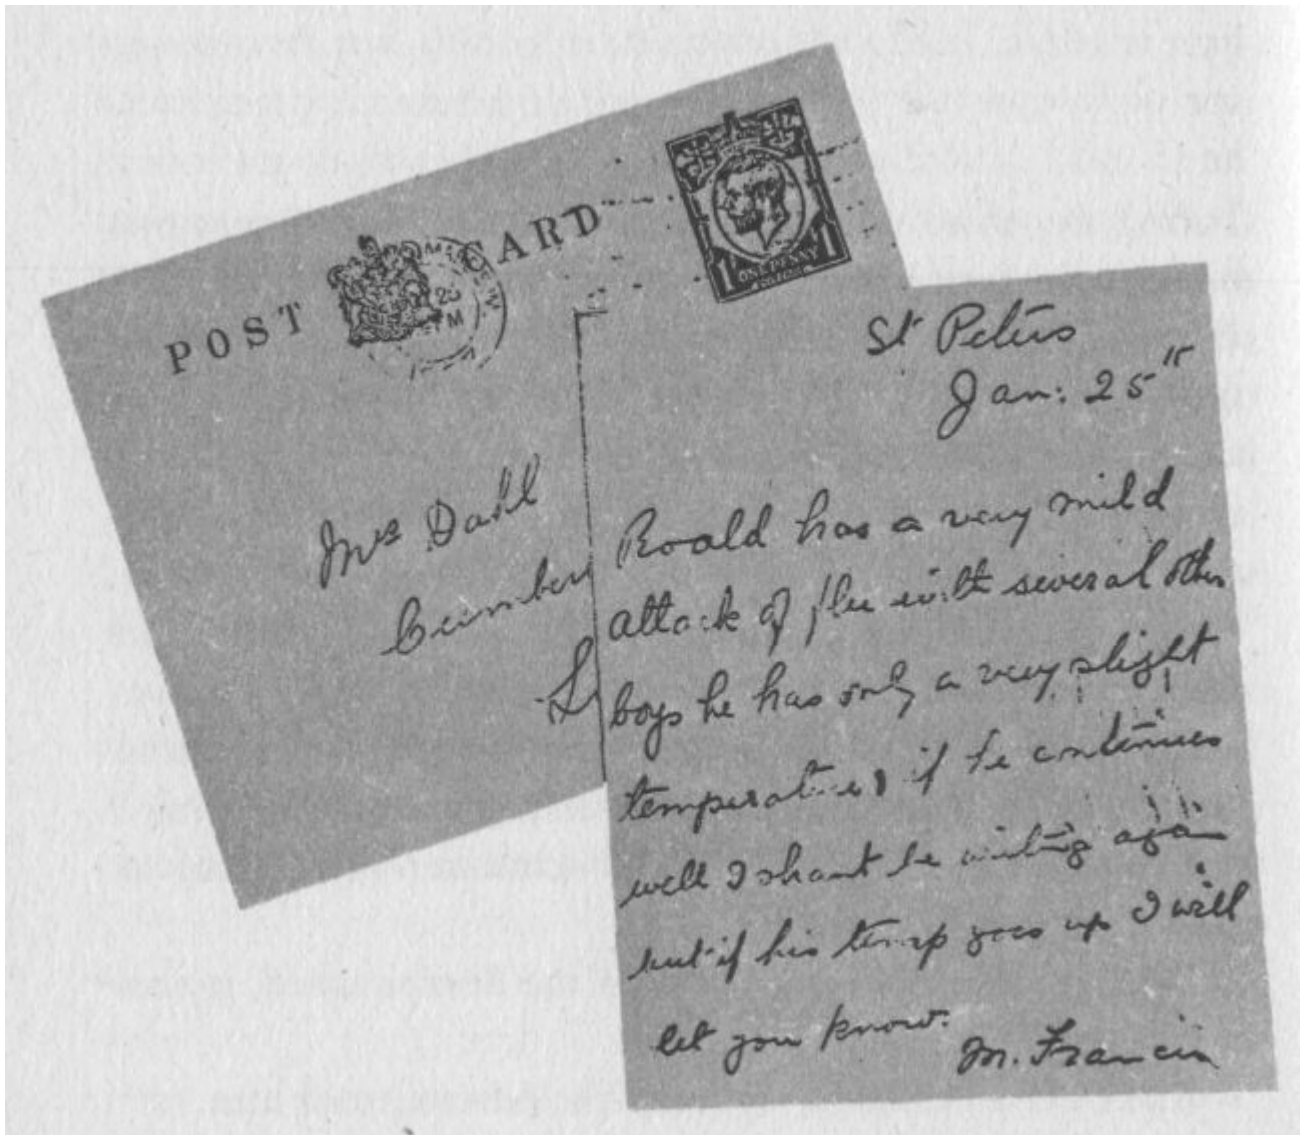 POST CARD
25
PM
ONE PENNY
1 1
Mrs Dahl
Cumber
L
St Peters
Jan: 25th
Roald has a very mild
attack of flu with several other
boys he has only a very slight
temperature, if he continues
well I shant be writing again
but if his temp goes up I will
let you know.
M. Francis